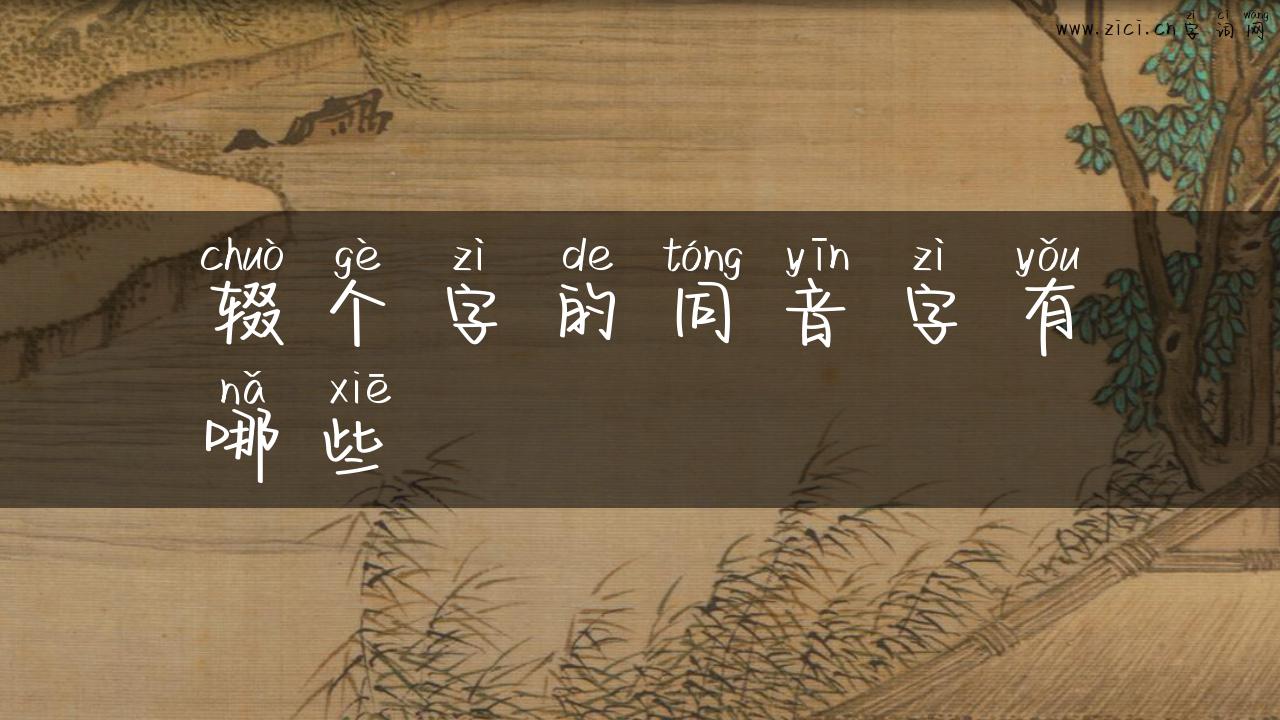 zì cí wǎng
www.zici.cn字词网
chuò gè zì de tóng yīn zì yǒu
辍个字的同音字有
nǎ xiē
哪些